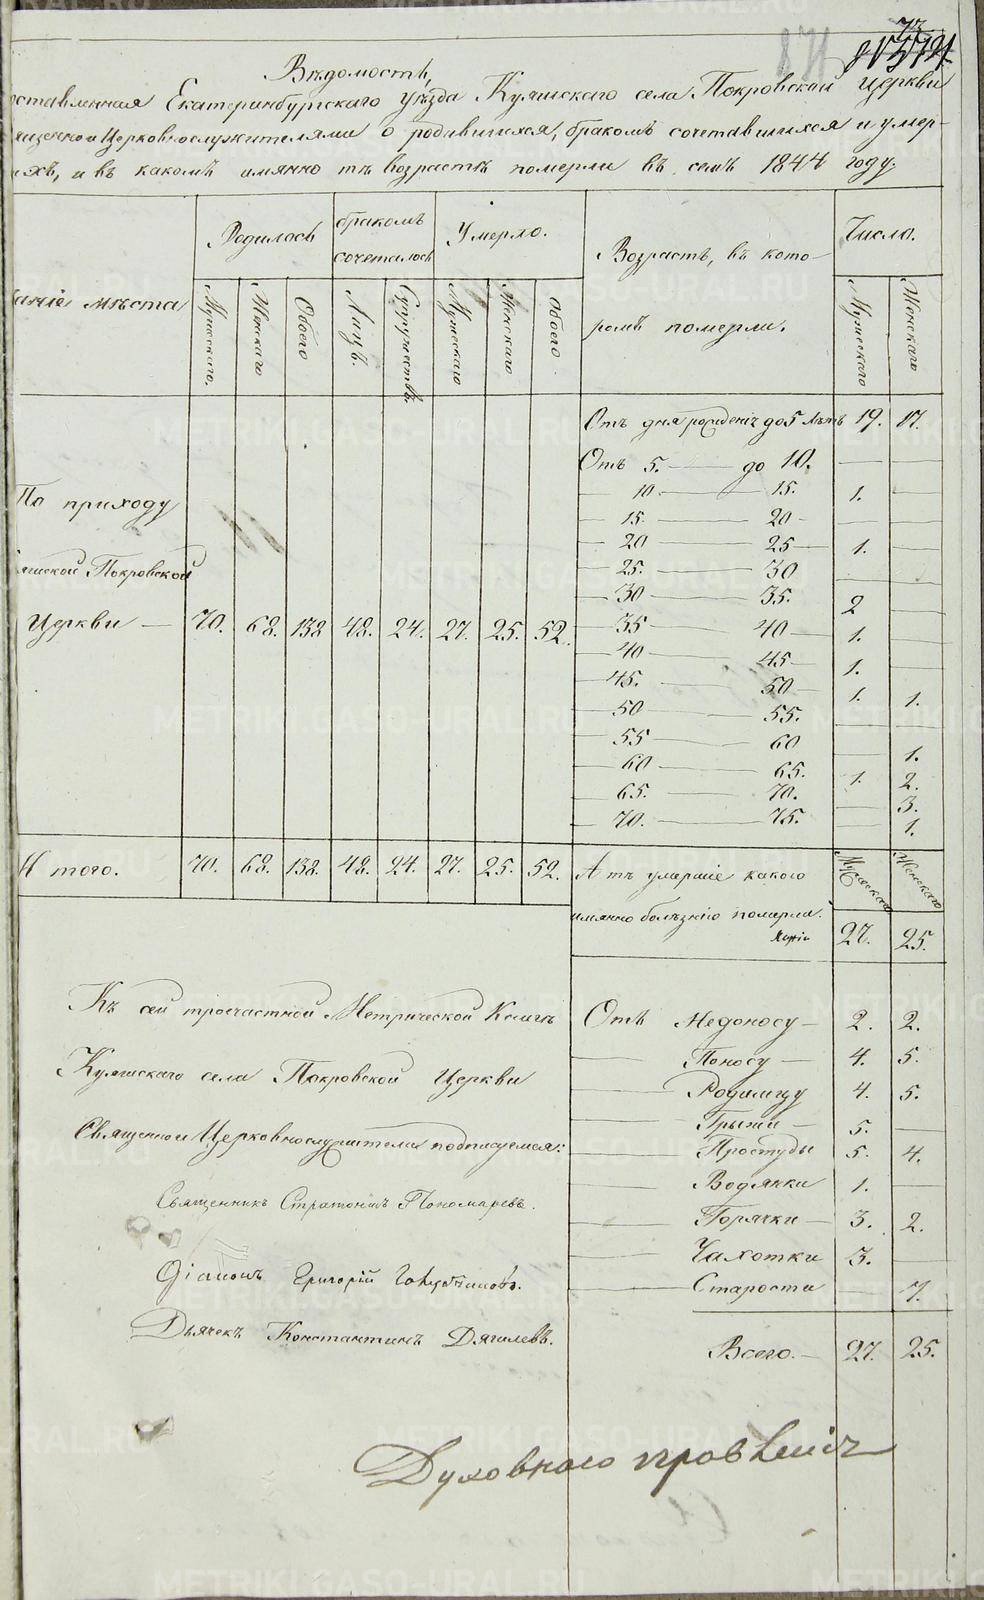 73
871
Вѣдомость,
оставленная Екатеринбургскаго уѣзда Куяшскаго села Покровской Церкви
ященно и Церковнослужителями о родившихся, бракомъ сочетавшихся и умер-
ихъ, и въ какомъ имянно тѣ возрастѣ померли въ семъ 1844 году.
аніе мѣста
Родилось
бракомъ сочеталось
Умерло.
Возрастъ, въ кото-
ромъ померли.
Число.
Мужескаго. Женскаго Обоего Лицъ. Супружествъ. Мужескаго Женскаго Обоего Мужескаго Женскаго
Отъ дня рожденія до 5 лѣтъ 19. 17.
Отъ 5. — до 10. — —
— 10 — 15. 1. —
— 15. — 20 — — —
— 20 — 25 — 1. —
— 25. — 30
— 30 — 35. 2 —
— 35 — 40 — 1. —
— 40 — 45 — 1. —
— 45. — 50 — 1. 1.
— 50 — 55.
— 55 — 60 — 1.
— 60 — 65. 1. 2.
— 65. — 70. — 3.
— 70. — 75. — 1.
По приходу
яшской Покровской
Церкви — 70. 68. 138 48. 24. 27. 25. 52.
Итого. 70. 68. 138. 48. 24. 27. 25. 52.
А тѣ умершіе какого
имянно болѣзнію померли.
Мужескаго Женскаго
27. 25.
Отъ Недоносу — 2. 2.
— Поносу — 4. 5.
— Родимцу 4. 5.
— Грыжи — 5. —
— Простуды 5. 4.
— Водянки 1. —
— Горячки — 3. 2.
— Чахотки 3. —
— Старости — 7.
Всего. — 27. 25.
Къ сей троечастной Метрической Книгѣ
Куяшскаго села Покровской Церкви
Священно и Церковнослужители подписуемся:
Священникъ Стратоникъ Пономаревъ.
Діаконъ Григорій
Дьячекъ Константинъ Дягилевъ.
Духовнаго правленія